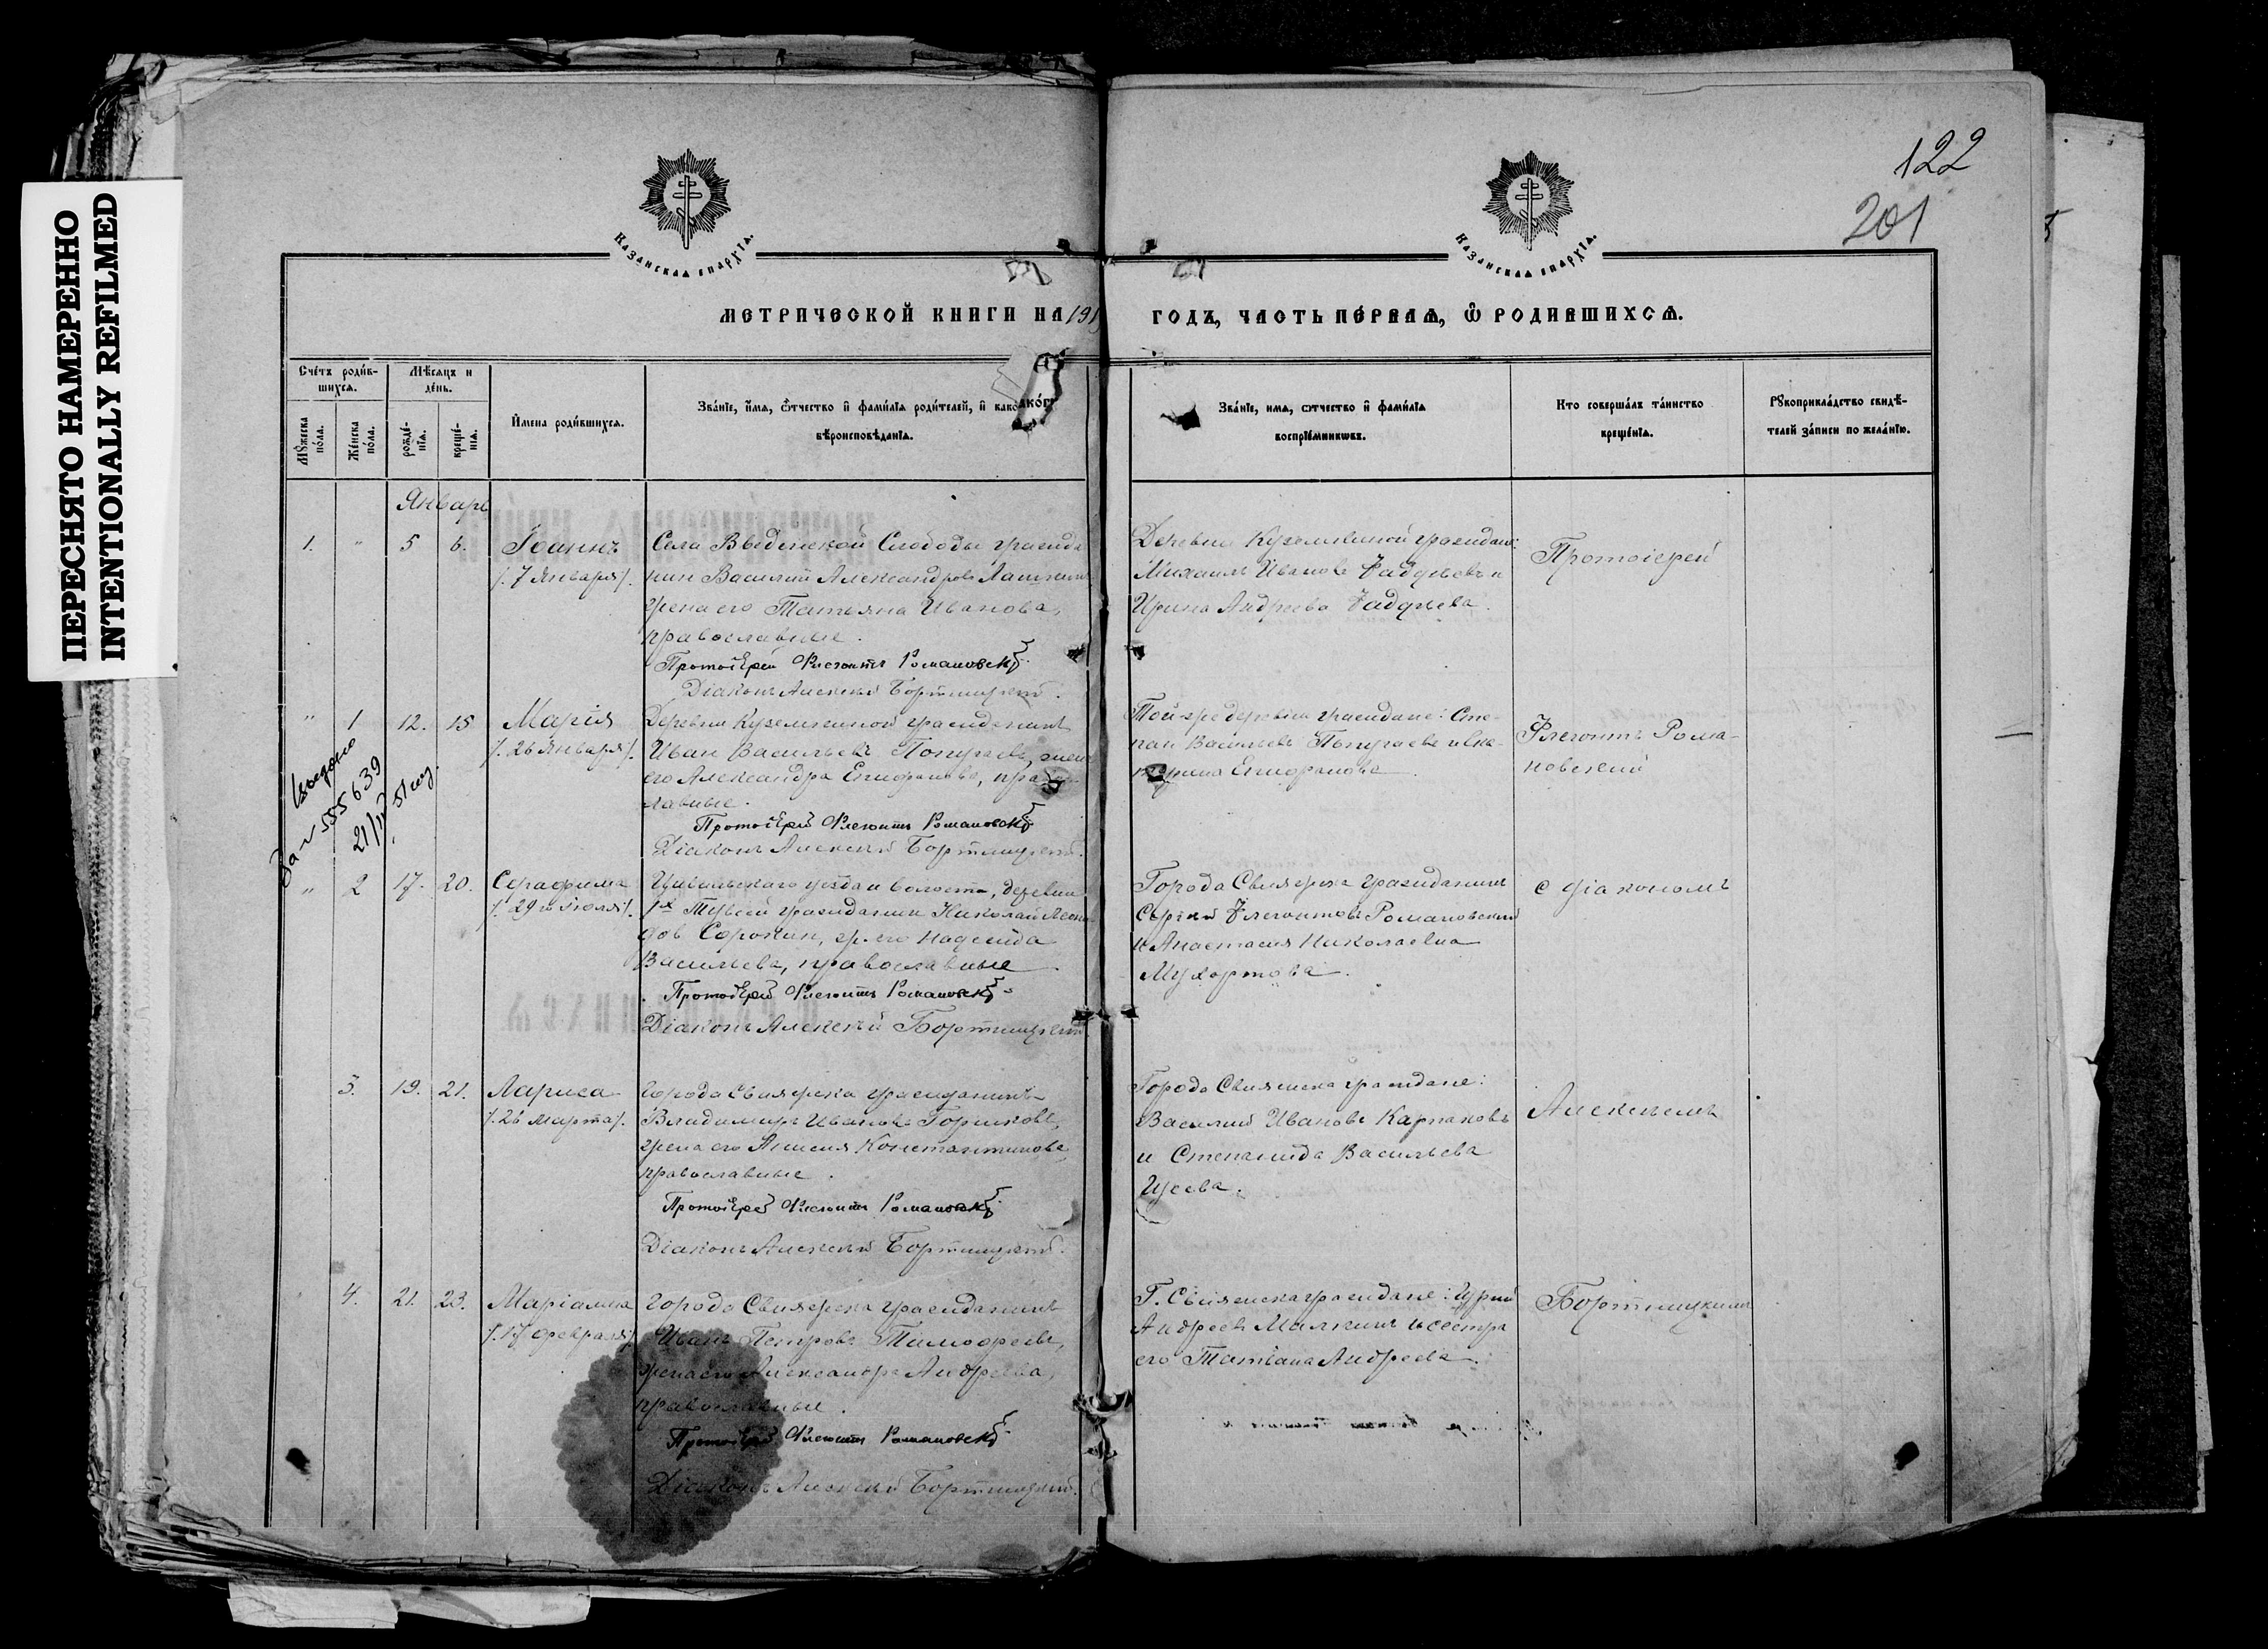 ПЕРЕСНЯТО НАМЕРЕННО
INTENTIONALLY REFILMED
122
201
Казанская епархїа.
Казанская епархїа.
МЕТРИЧЕСКОЙ КНИГИ НА 191
ГОДЪ, ЧАСТЬ ПЕ́РВАЯ, Ѿ РОДИВШИХСѦ.
Сче́тъ роди́в-
шихсѧ.
Мѣ́сяцъ и
де́нь.
Мꙋ́жеска
по́ла.
Же́нска
по́ла.
рожде́-
нїѧ.
креще́-
нїѧ.
И҆мена роди́вшихсѧ.
Зва́нїе, и҆́мѧ, ѻ҆́тчество и҆ фами́лїѧ роди́телей, и҆ како́го
вѣроисповѣ́данїѧ.
Зва́нїе, имѧ, ѻтчество и҆ фами́лїѧ
воспрїе́мникѡвъ.
Кто соверша́лъ та́инство
креще́нїѧ.
Рꙋкоприкла́дство свидѣ́-
телей за́писи по жела́нїю.
Январь
1. " 5 6. Іоаннъ
/. 7 Января /.
Села Введенской Слободы гражда
нин Василий Александровъ Лашкин
жена его Татьяна Иванова,
православные.
Протоіерей Флегонтъ Романовскій
Діаконъ Алексѣй Бортницкій.
Деревни Куземкиной граждане:
Михаилъ Ивановъ Фадѣевъ и
Ирина Андреева Фадѣева.
Протоіерей
" 1 12. 15 Марія
/. 26 Января /.
Деревни Куземкиной гражданинъ
Иван Васильевъ Попугаевъ, жена
его Александра Епифанова, право-
славные.
Протоіерей Флегонтъ Романовскій
Діаконъ Алексѣй Бортницкій.
Той-же деревни граждане: Сте-
пан Васильевъ Попугаевъ и Ека-
терина Епифанова.
Флегонтъ Рома-
новскій
Выдано
За № 555639
21/II 51 год.
" 2 17. 20. Серафима
/. 29 го Іюля /.
Цивильскаго уѣзда и волости, деревни
гражданин Николай
Сорокин, ж. его Надежда
Васильева, православные.
Протоіерей Флегонтъ Романовскій
Діаконъ Алексѣй Бортницкій
Города Свияжска гражданинъ
Сергий Флегонтовъ Романовский
и Анастасия Николаевна
Мухортова.
с діакономъ
3. 19. 21. Лариса
/. 26 Марта /.
Города Свияжска гражданинъ
Владимиръ Ивановъ Горшковъ,
жена его Анисия Константинова,
православные.
Протоіерей Флегонтъ Романовскій
Діаконъ Алексѣй Бортницкій.
Города Свияжска граждане:
Василий Ивановъ Карпаковъ
и Степанида Васильева
Алексѣемъ
4. 21. 23. Маріамна
/. 17 Февраля /.
Города Свияжска гражданинъ
Иванъ Петровъ Тимофеевъ,
жена его Александра Андреева,
православные.
Протоіерей Флегонтъ Романовскій
Діаконъ Алексѣй Бортницкій.
Г. Свияжска граждане: Гурий
Андреевъ Малкинъ и сестра
его Татіана Андреева.
Бортницкимъ